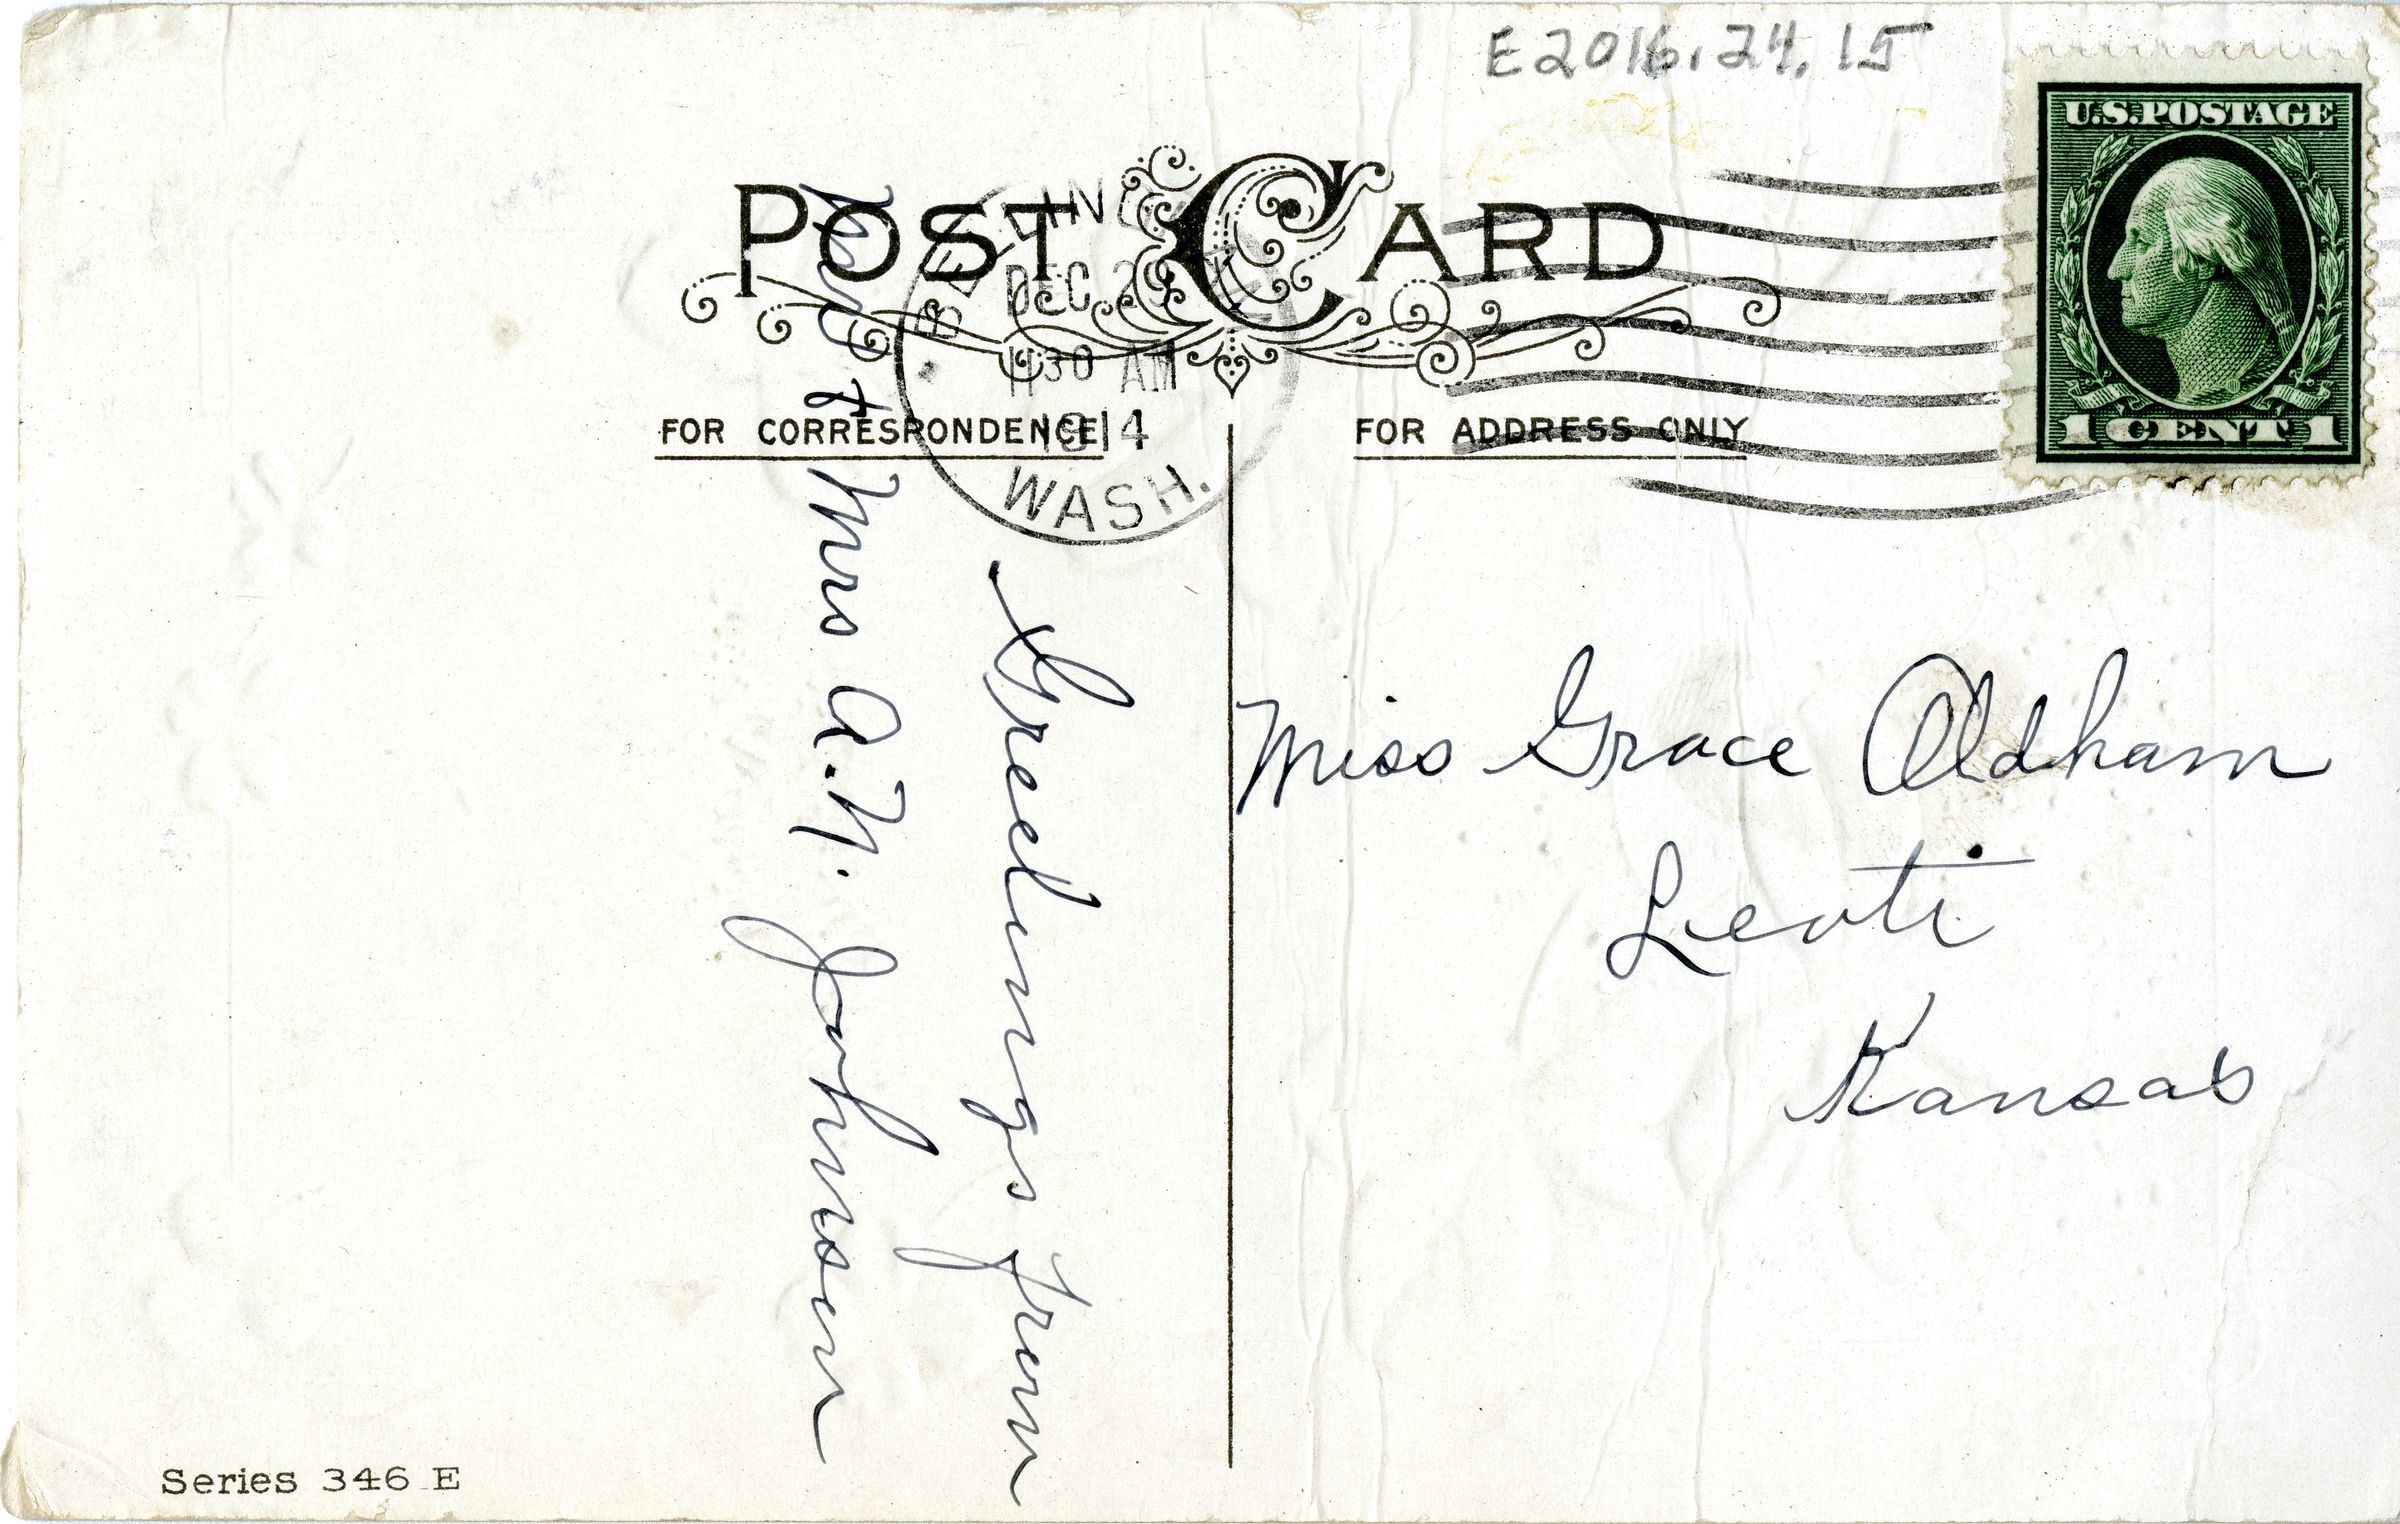 E2016.24.15
U.S. POSTAGE
1 CENT 1
POST CARD
DEC 29
11 30 AM
1914
WASH.
FOR CORRESPONDENCE
FOR ADDRESS ONLY
Greetings from
Mr & Mrs A.N. Johnson
Miss Grace Oldham
Leoti
Kansas
Series 346 E